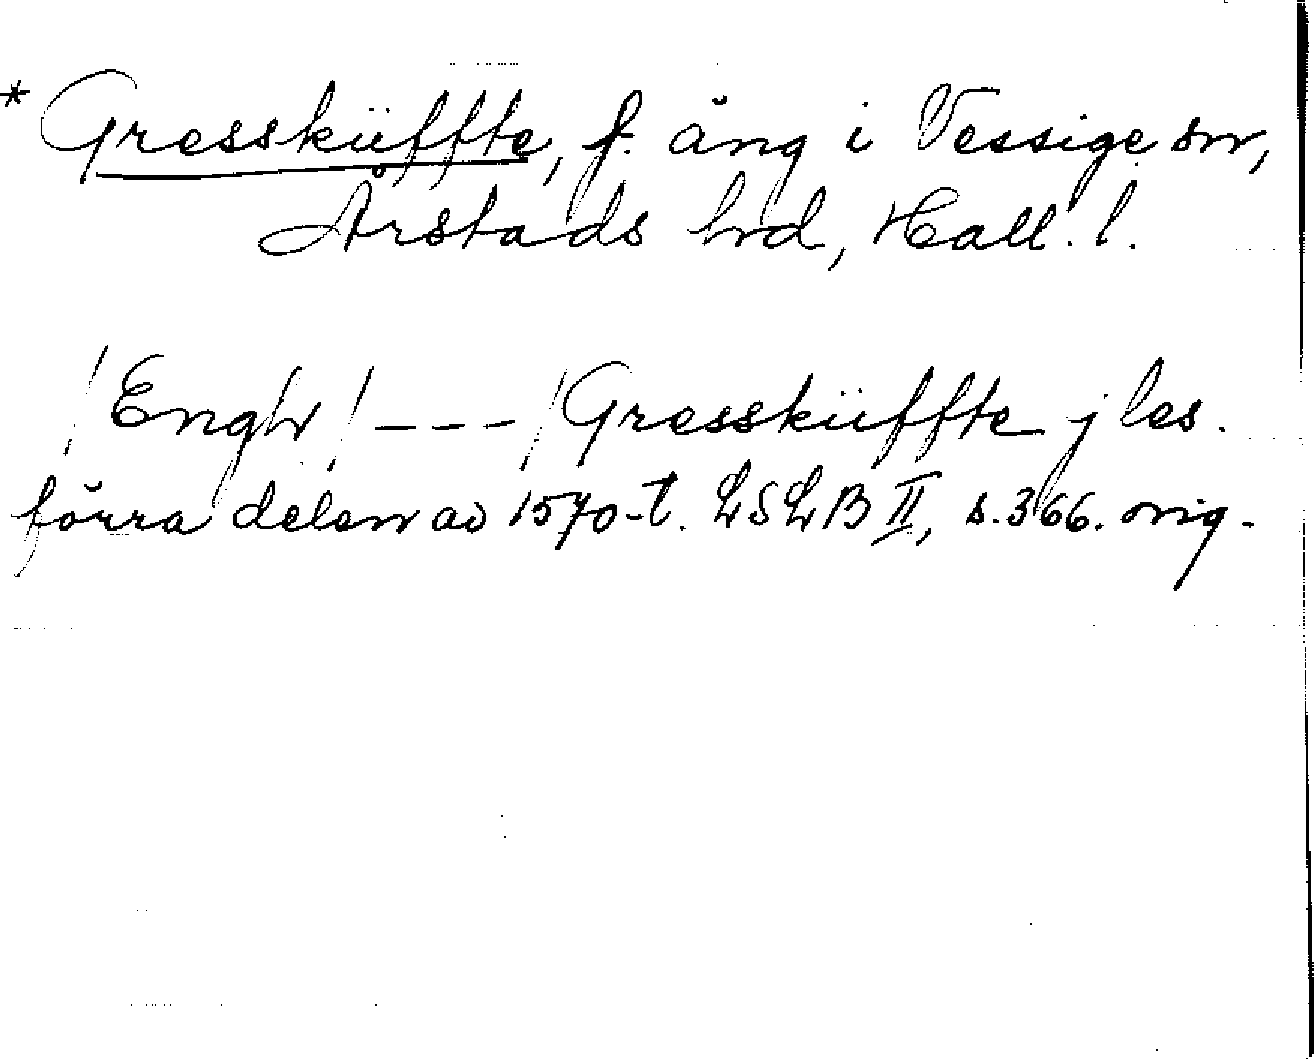 * Gresskiiffte, f. äng i Vessige sn,
Årstads hd, Hall. l.
/Engh/ --- /Gresskiiffte j les.
förra delen av 1570-t. LSLB II, s. 366. orig.